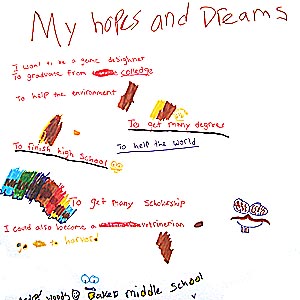 My hopes and Dreams
I want to be a game designer
To graduate from colledge
To help the environment
To get many degrees
To finish high school
To help the world
To get many Scholership
I could also become a vetrinerian
to harverd
Oaker middle school